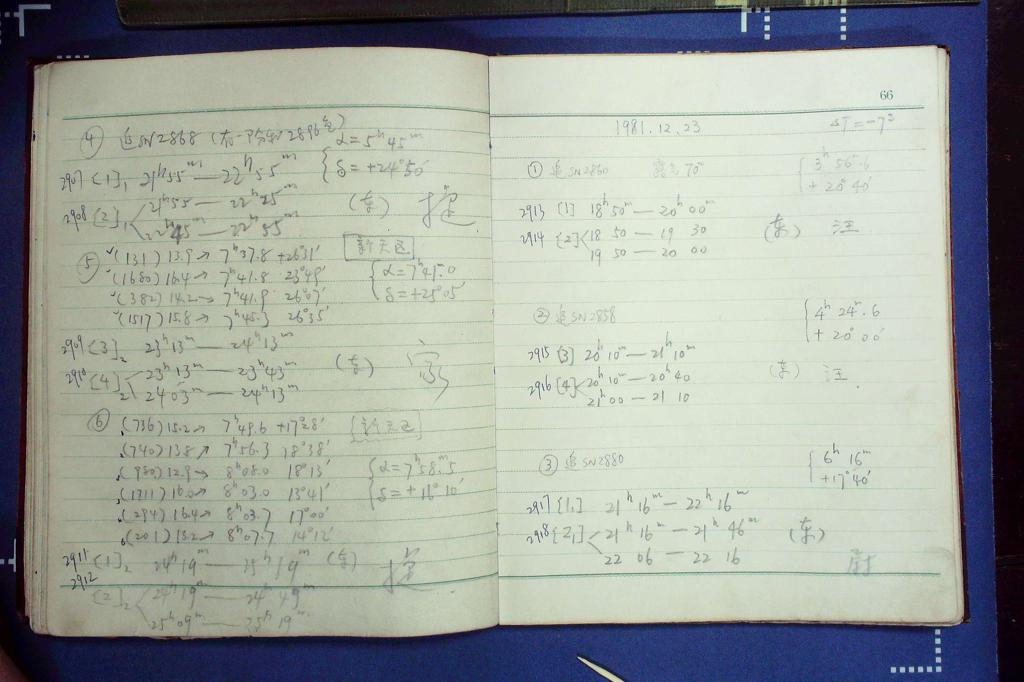 ④ 追SN2868 α=5ʰ45ᵐ
δ=+24°50′
2907 [1]₁ 21ʰ55ᵐ — 22ʰ55ᵐ
2908 [2]₁ 21ʰ55 — 22ʰ25ᵐ (东)
22ʰ45ᵐ — 22ʰ55ᵐ
⑤ (131) 13.9→ 7ʰ37.8 +26°31′ 新天区
(1680) 16.4→ 7ʰ41.8 23°49′ α=7ʰ41ᵐ.0
(382) 14.2→ 7ʰ41.9 26°07′ δ=+25°05′
(1517) 15.8→ 7ʰ45.3 26°35′
2909 [3]₂ 23ʰ13ᵐ — 24ʰ13ᵐ
2910 [4]₂ 23ʰ13ᵐ — 23ʰ43ᵐ (东)
24ʰ03ᵐ — 24ʰ13ᵐ
⑥ (736) 15.2→ 7ʰ49.6 +17°28′ 新天区
(740) 13.8→ 7ʰ56.3 18°38′
(980) 12.9→ 8ʰ08.0 18°13′ α=7ʰ58ᵐ.5
(1311) 16.0→ 8ʰ03.0 13°41′ δ=+16°10′
(294) 16.4→ 8ʰ03.7 17°00′
(201) 13.2→ 8ʰ07.7 14°12′
2911 [1]₂ 24ʰ19ᵐ — 25ʰ19ᵐ (东)
2912 [2]₂ 24ʰ19ᵐ — 24ʰ49ᵐ
25ʰ09ᵐ — 25ʰ19ᵐ
66
1981.12.23 ΔT=-7ˢ
① 追SN2860 3ʰ56ᵐ.6
+20°40′
2913 [1] 18ʰ50ᵐ — 20ʰ00ᵐ
2914 [2] 18 50 — 19 30 (东) 汪
19 50 — 20 00
② 追SN2858 4ʰ24ᵐ.6
+20°00′
2915 [3] 20ʰ10ᵐ — 21ʰ10ᵐ
2916 [4] 20ʰ10ᵐ — 20ʰ40 (东) 汪
21ʰ00 — 21 10
③ 追SN2880 6ʰ16ᵐ
+17°40′
2917 [1₁] 21ʰ16ᵐ — 22ʰ16ᵐ
2918 [2₁] 21ʰ16ᵐ — 21ʰ46ᵐ (东)
22 06 — 22 16